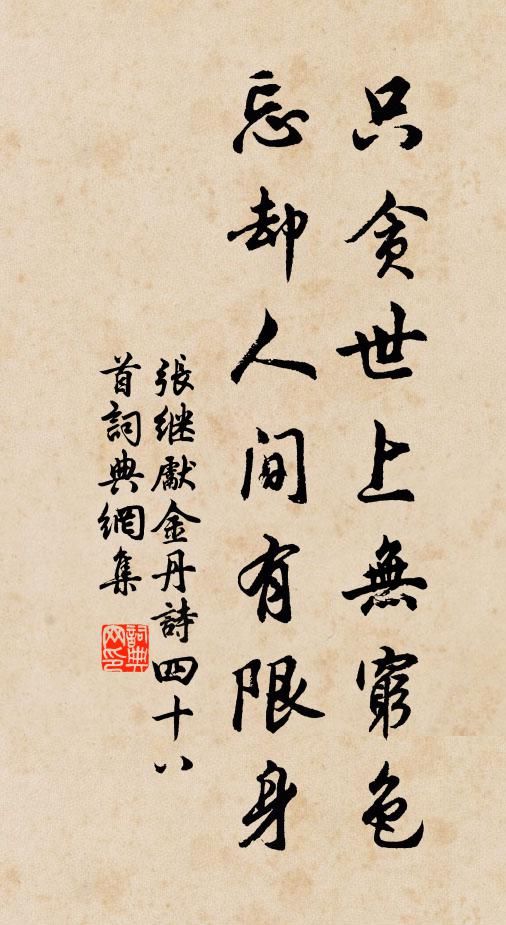 只貪世上無窮色
忘却人間有限身
張继獻金丹詩四十八
首詞典網集
詞典
网印